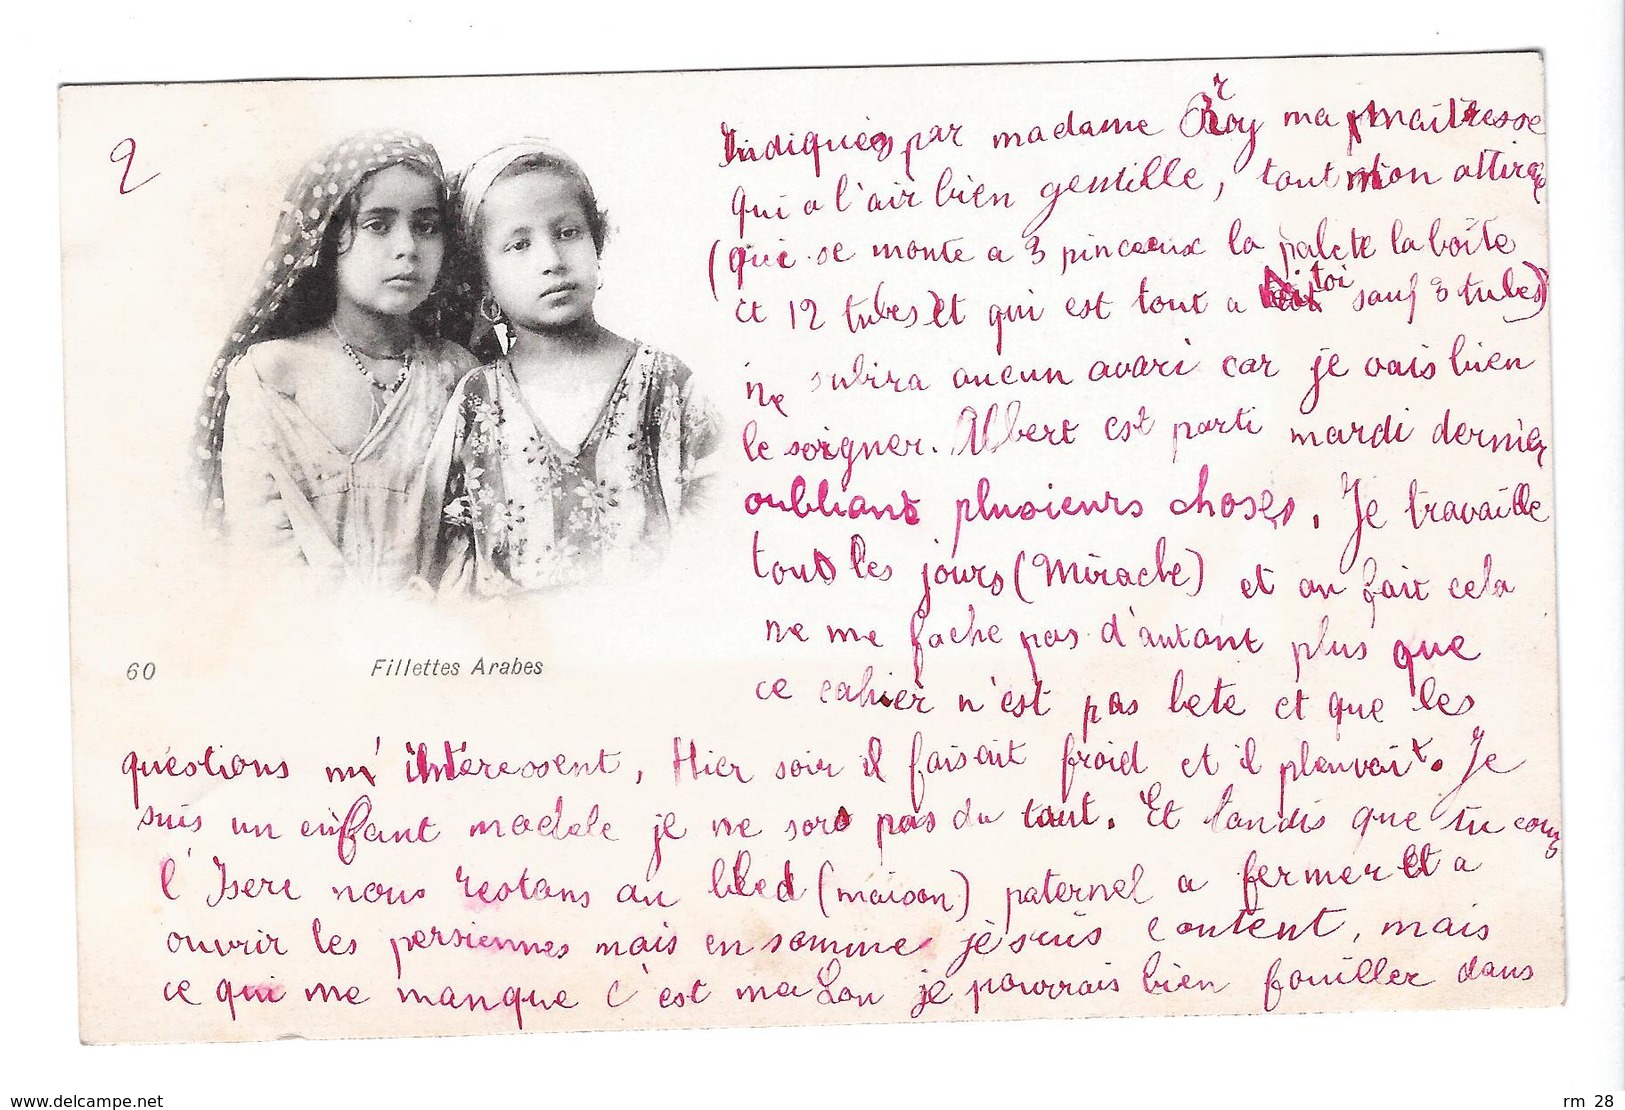 2
Indiquées par madame Roy ma maîtresse
qui a l'air bien gentille, tout mon attirail
(qui se monte a 3 pinceaux la palete la boîte
et 12 tubes) et qui est tout a toi sauf 3 tubes)
ne subira aucun avari car je vais bien
le soigner. Albert est parti mardi dernier
oubliant plusieurs choses. Je travaille
tous les jours (Mirache) et au fait cela
ne me fache pas d'autant plus que
ce cahier n'est pas bete et que les
60 Fillettes Arabes
questions m'interessent, Hier soir il faisait froid et il pleuvait. Je
suis un enfant modele je ne sors pas du tout. Et tandis que tu cours
l'Isere nous restons au bled (maison) paternel a fermer et a
ouvrir les persiennes mais en somme je suis content, mais
ce qui me manque c'est ma Lou je pourrais bien fouiller dans
www.delcampe.net
rm_28